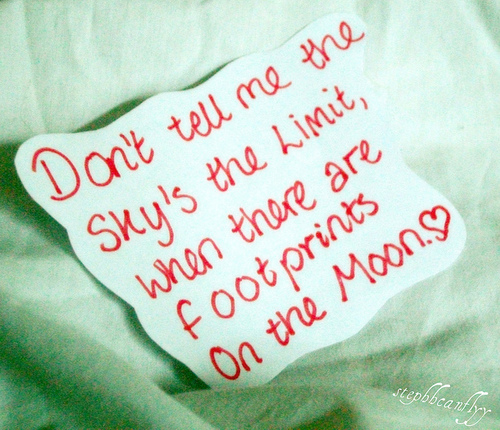 Don't tell me the
Sky's the Limit,
when there are
footprints
on the Moon.♡
stephbcanflyy